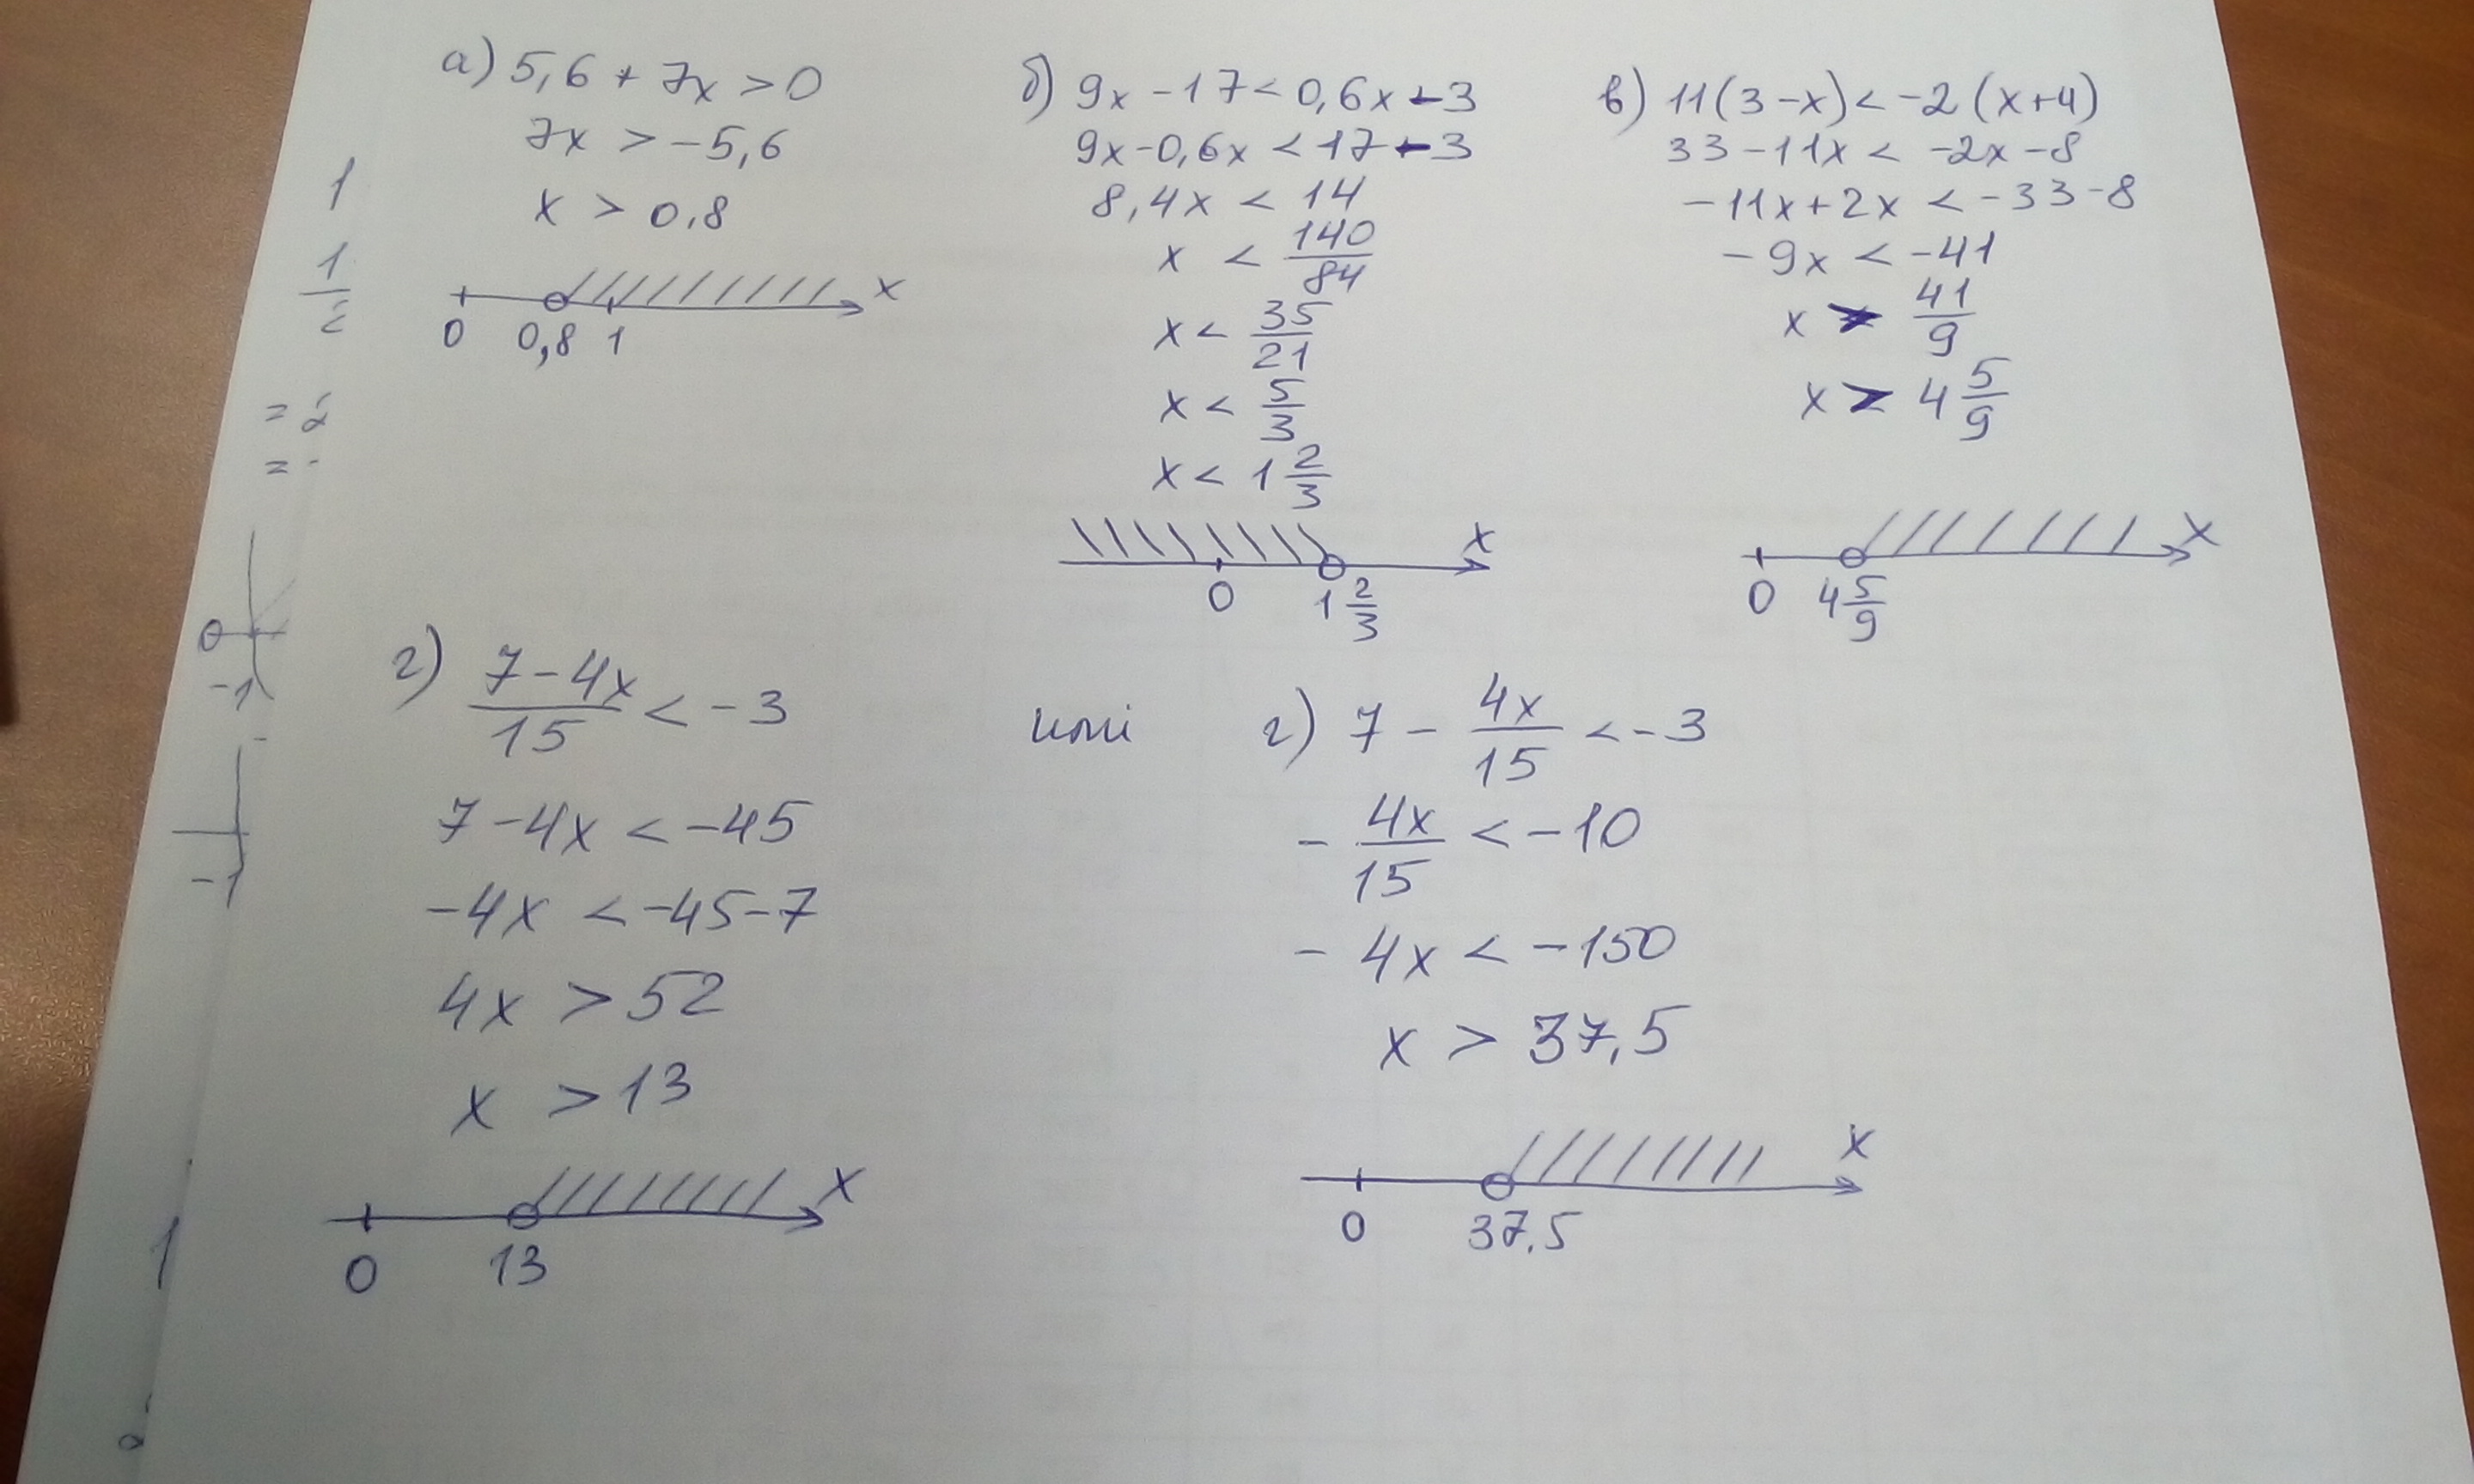 а) 5,6 + 7x > 0
7x > -5,6
x > 0,8
x
0 0,8 1
б) 9x - 17 < 0,6x - 3
9x - 0,6x < 17 - 3
8,4x < 14
x < 140/84
x < 35/21
x < 5/3
x < 1 2/3
x
0 1 2/3
в) 11(3 - x) < -2(x + 4)
33 - 11x < -2x - 8
-11x + 2x < -33 - 8
-9x < -41
x > 41/9
x > 4 5/9
x
0 4 5/9
г) (7 - 4x)/15 < -3
7 - 4x < -45
-4x < -45 - 7
4x > 52
x > 13
x
0 13
или
г) 7 - 4x/15 < -3
- 4x/15 < -10
- 4x < -150
x > 37,5
x
0 37,5
1
1
=
=
0
-1
-1
1